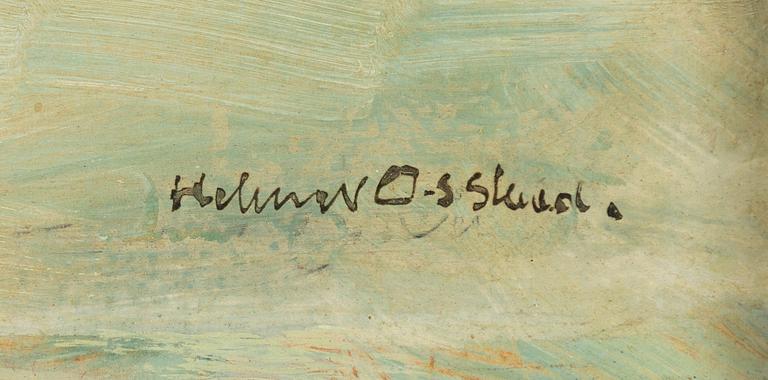 Helmer O-s Slund.